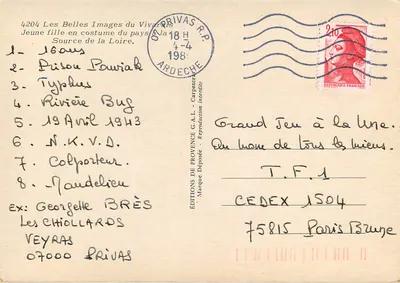 4204 Les Belles Images du Vivar
Jeune fille en costume du pays, la
Source de la Loire.
07 PRIVAS R.P.
18 H
4-4
198
ARDECHE
2,10
1- 16 ans
2- Prison Pawiak
3- Typhus
4- Rivière Bug
5- 19 Avril 1943
6- N.K.V.D.
7- Colporteur.
8- Mandelieu
ex: Georgette BRÈS
Les CHIOLLARDS
VEYRAS
07000 PRIVAS
ÉDITIONS DE PROVENCE G.A.L. - Carpentras
Marque Déposée - Reproduction interdite
Grand Jeu à la Une.
Au nom de tous les miens.
T.F.1
CEDEX 1504
75815 Paris Brune